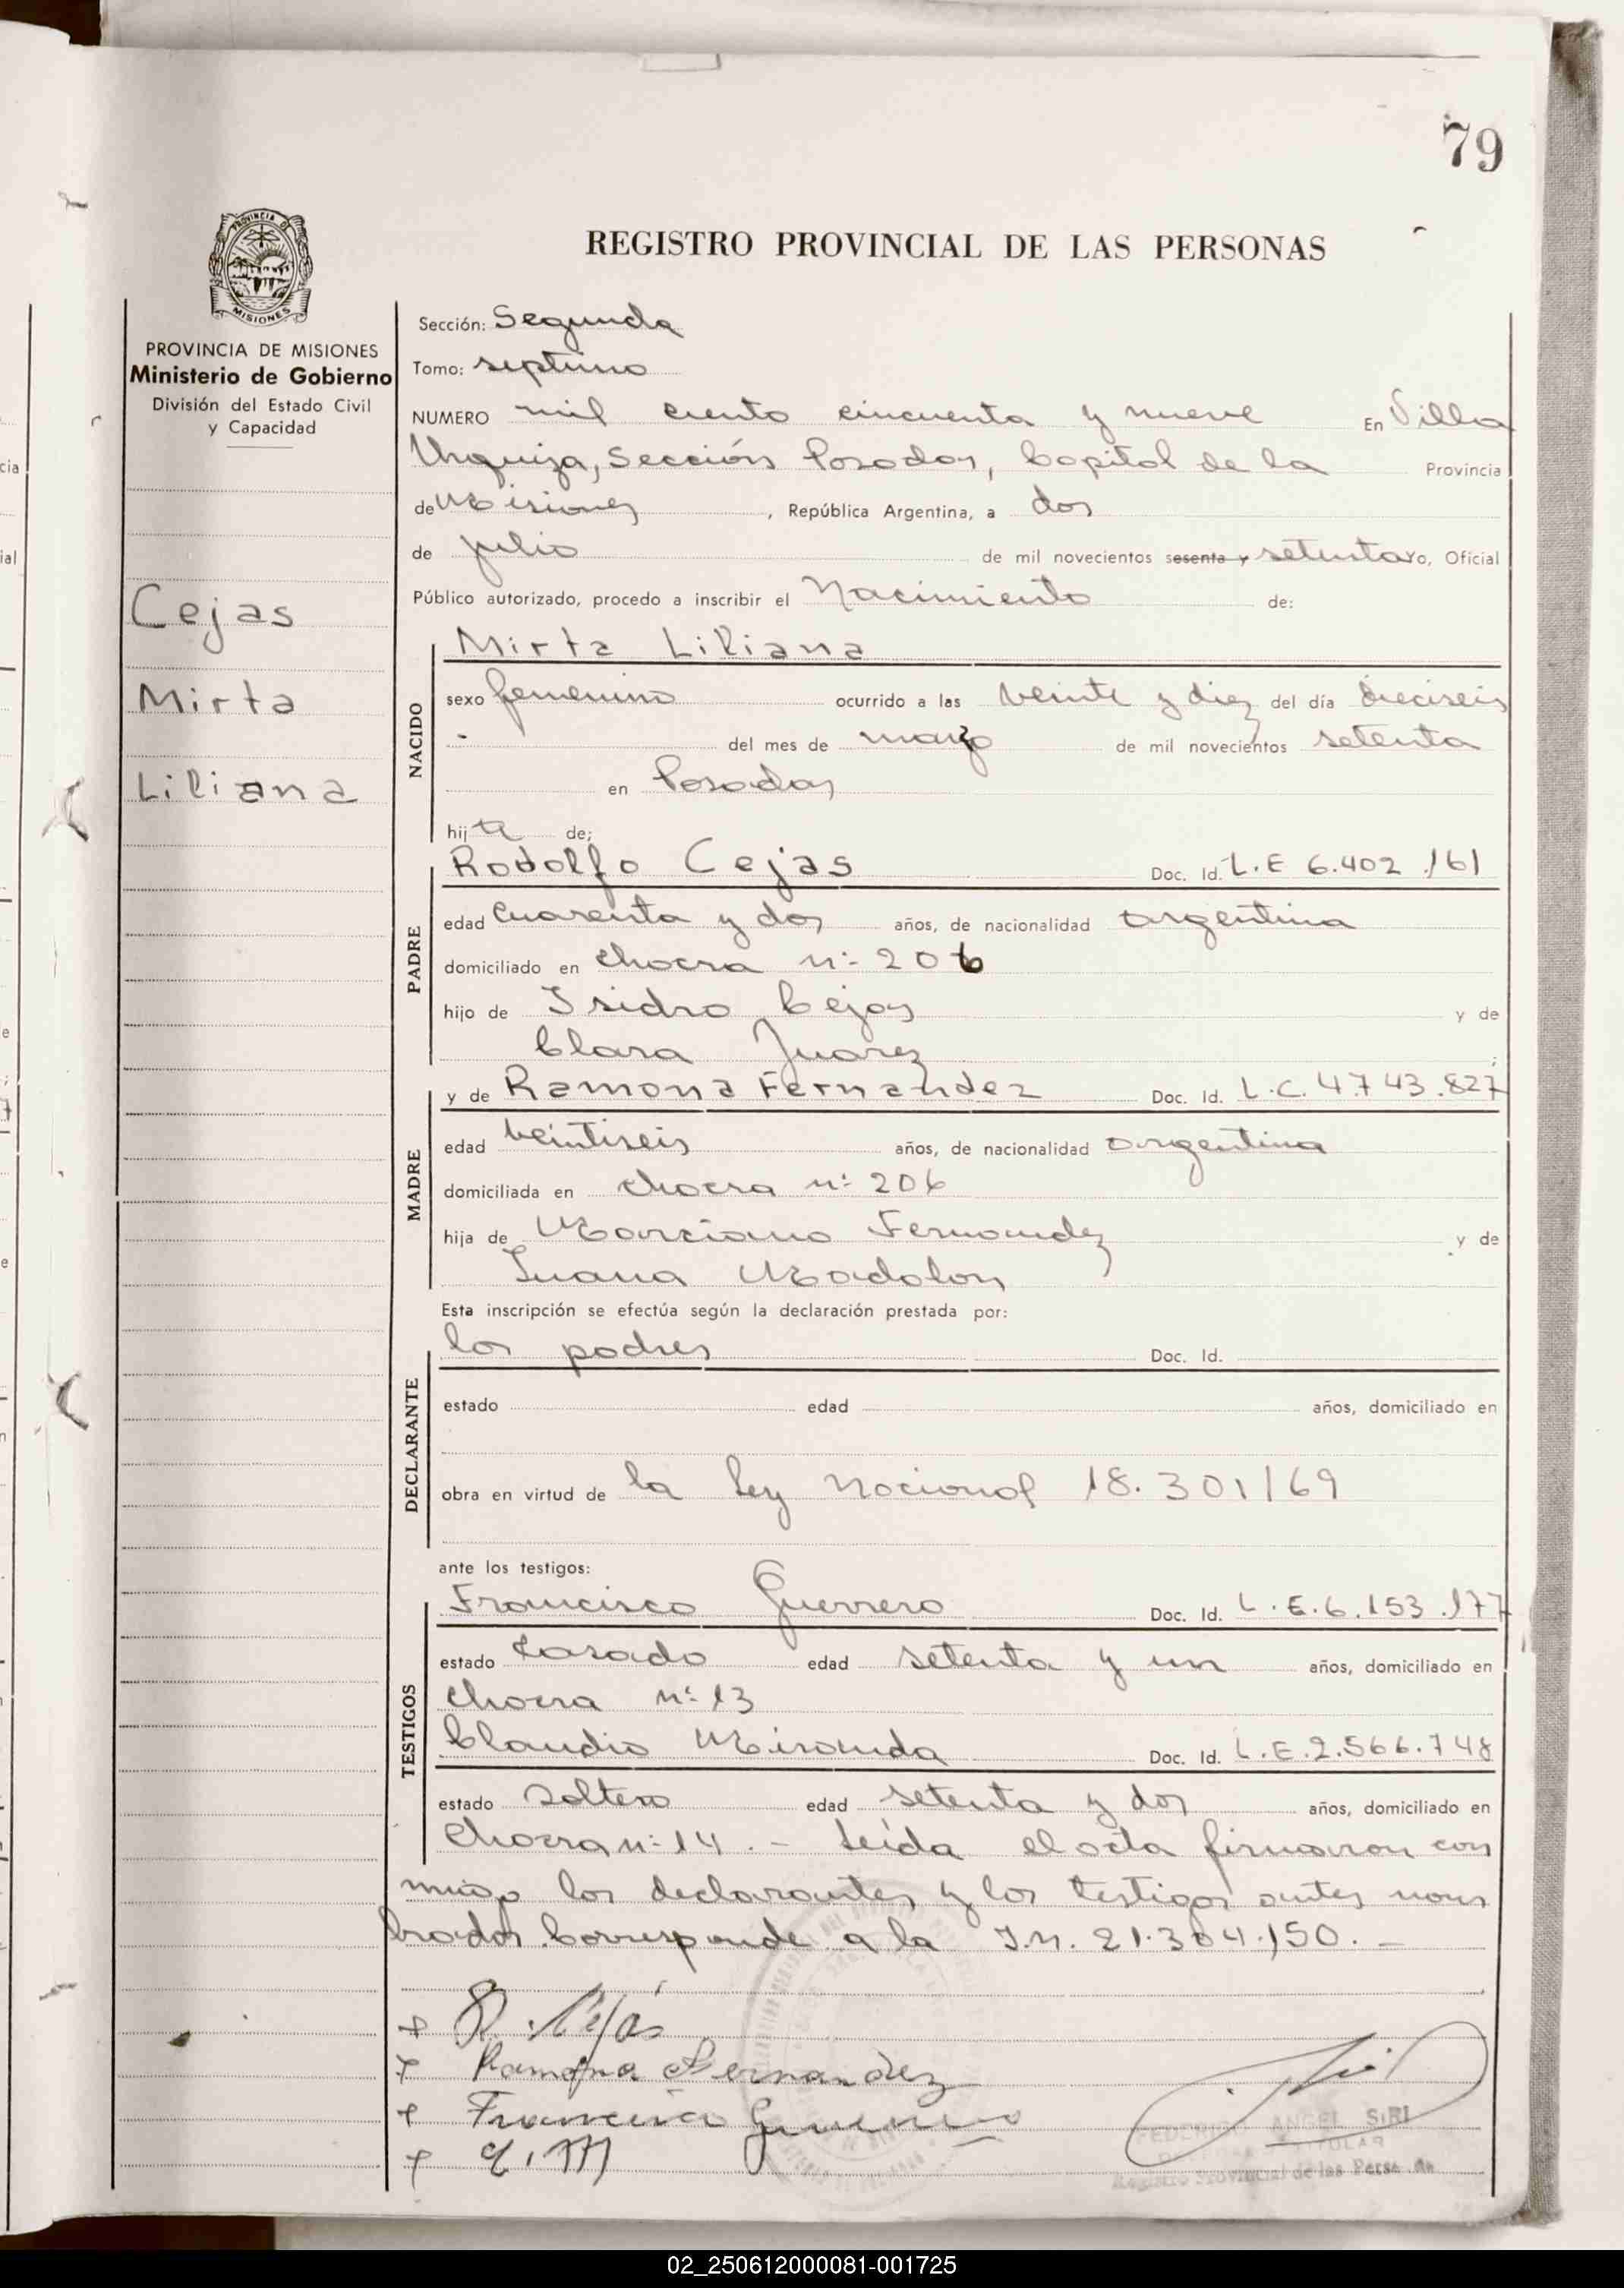 79
PROVINCIA DE
MISIONES
PROVINCIA DE MISIONES
Ministerio de Gobierno
División del Estado Civil
y Capacidad
Cejas
Mirta
Liliana
REGISTRO PROVINCIAL DE LAS PERSONAS
Sección: Segunda
Tomo: septimo
NUMERO mil ciento cincuenta y nueve En Villa
Urquiza, Sección Posadas, Capital de la Provincia
de Misiones, República Argentina, a dos
de julio de mil novecientos sesenta y setenta yo, Oficial
Público autorizado, procedo a inscribir el Nacimiento de:
NACIDO
Mirta Liliana
sexo femenino ocurrido a las veinte y diez del día dieciseis
del mes de marzo de mil novecientos setenta
en Posadas
hija de;
PADRE
Rodolfo Cejas Doc. Id. L.E 6.402.161
edad cuarenta y dos años, de nacionalidad argentina
domiciliado en chacra n: 206
hijo de Isidro Cejas y de
Clara Juarez ;
MADRE
y de Ramona Fernandez Doc. Id. L.C. 4.743.827
edad veintiseis años, de nacionalidad argentina
domiciliada en chacra n: 206
hija de Marciano Fernandez y de
Juana Madalon
DECLARANTE
Esta inscripción se efectúa según la declaración prestada por:
los padres Doc. Id.
estado edad años, domiciliado en
obra en virtud de la Ley Nacional 18.301/69
TESTIGOS
ante los testigos:
Francisco Guerrero Doc. Id. L.E.6.153.177
estado Casado edad setenta y un años, domiciliado en
chacra n: 13
Claudio Miranda Doc. Id. L.E.2.566.748
estado soltero edad setenta y dos años, domiciliado en
chacra n: 14.- Leída el acta firmaron con
migo los declarantes y los testigos antes nom
brados. Corresponde a la I.N. 21.304.150.-
R. Cejas
Ramona Fernandez
Francisco Guerrero
ANGEL SIRI
TITULAR
Registro Provincial de las Personas
02_250612000081-001725